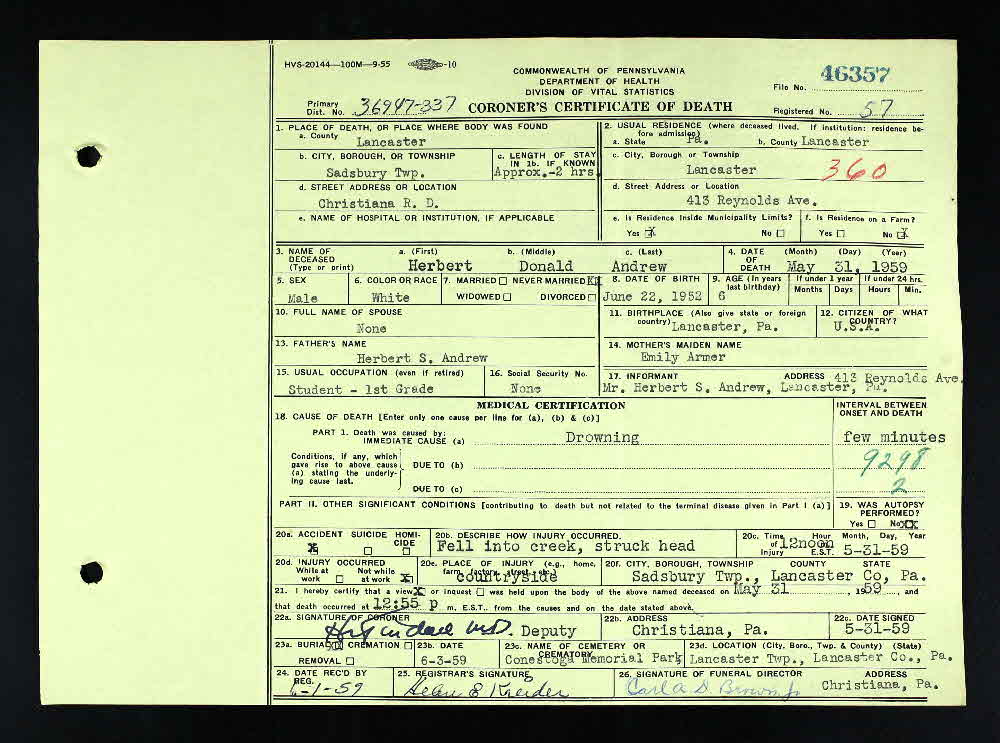 HVS-20144—100M—9-55 -10
COMMONWEALTH OF PENNSYLVANIA
DEPARTMENT OF HEALTH
DIVISION OF VITAL STATISTICS
46357
File No.
Primary Dist. No. 36947-337 CORONER'S CERTIFICATE OF DEATH Registered No. 57
1. PLACE OF DEATH, OR PLACE WHERE BODY WAS FOUND
a. County Lancaster
2. USUAL RESIDENCE (where deceased lived. If institution: residence before admission)
a. State Pa. b. County Lancaster
b. CITY, BOROUGH, OR TOWNSHIP
Sadsbury Twp.
c. LENGTH OF STAY IN 1b. IF KNOWN
Approx.-2 hrs
c. City, Borough or Township
Lancaster 360
d. STREET ADDRESS OR LOCATION
Christiana R. D.
d. Street Address or Location
413 Reynolds Ave.
e. NAME OF HOSPITAL OR INSTITUTION, IF APPLICABLE
e. Is Residence Inside Municipality Limits?
Yes X No
f. Is Residence on a Farm?
Yes No X
3. NAME OF DECEASED (Type or print)
a. (First) b. (Middle) c. (Last)
Herbert Donald Andrew
4. DATE OF DEATH (Month) (Day) (Year)
May 31, 1959
5. SEX
Male
6. COLOR OR RACE
White
7. MARRIED NEVER MARRIED X
WIDOWED DIVORCED
8. DATE OF BIRTH
June 22, 1952
9. AGE (In years last birthday)
6
If under 1 year If under 24 hrs.
Months Days Hours Min.
10. FULL NAME OF SPOUSE
None
11. BIRTHPLACE (Also give state or foreign country)
Lancaster, Pa.
12. CITIZEN OF WHAT COUNTRY?
U.S.A.
13. FATHER'S NAME
Herbert S. Andrew
14. MOTHER'S MAIDEN NAME
Emily Armer
15. USUAL OCCUPATION (even if retired)
Student - 1st Grade
16. Social Security No.
None
17. INFORMANT ADDRESS 413 Reynolds Ave.
Mr. Herbert S. Andrew, Lancaster, Pa.
MEDICAL CERTIFICATION
18. CAUSE OF DEATH [Enter only one cause per line for (a), (b) & (c)]
INTERVAL BETWEEN ONSET AND DEATH
PART 1. Death was caused by:
IMMEDIATE CAUSE (a) Drowning few minutes
Conditions, if any, which gave rise to above cause (a) stating the underlying cause last.
DUE TO (b) 9298
2
DUE TO (c)
PART II. OTHER SIGNIFICANT CONDITIONS [contributing to death but not related to the terminal disease given in Part I (a)]
19. WAS AUTOPSY PERFORMED?
Yes No XX
20a. ACCIDENT SUICIDE HOMICIDE
X
20b. DESCRIBE HOW INJURY OCCURRED.
Fell into creek, struck head
20c. Time of Injury Hour Month, Day, Year
12noon E.S.T. 5-31-59
20d. INJURY OCCURRED
While at work Not while at work X
20e. PLACE OF INJURY (e.g., home, farm, factory, street, etc.)
countryside
20f. CITY, BOROUGH, TOWNSHIP COUNTY STATE
Sadsbury Twp., Lancaster Co, Pa.
21. I hereby certify that a view X or inquest was held upon the body of the above named deceased on May 31, 1959, and
that death occurred at 12:55 p m. E.S.T. from the causes and on the date stated above.
22a. SIGNATURE OF CORONER
M.D. Deputy
22b. ADDRESS
Christiana, Pa.
22c. DATE SIGNED
5-31-59
23a. BURIAL X CREMATION
REMOVAL
23b. DATE
6-3-59
23c. NAME OF CEMETERY OR CREMATORY
Conestoga Memorial Park
23d. LOCATION (City, Boro., Twp. & County) (State)
Lancaster Twp., Lancaster Co., Pa.
24. DATE REC'D BY REG.
6-1-59
25. REGISTRAR'S SIGNATURE
Helen E Kreider
26. SIGNATURE OF FUNERAL DIRECTOR ADDRESS
Carl A D. Brown Jr Christiana, Pa.